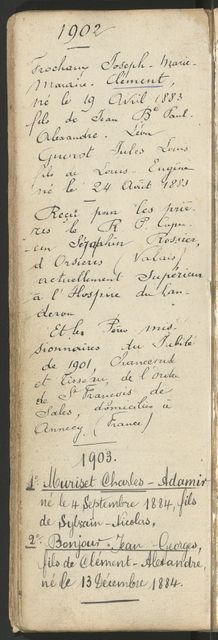 1902
Frochaux Joseph-Marie-
Maurice-Clément,
né le 19 Avril 1883
fils de Jean Bte Paul-
Alexandre. Léon
Guenot Jules Louis
fils de Louis-Eugène
né le 24 Août 1883
Reçu par les priè-
res le R. P. Capu-
cin Séraphin Rossier,
d'Orsières (Valais)
actuellement Supérieur
à l'Hospice du Lan-
deron
Et les Pères mis-
sionnaires du Jubilé
de 1901,
et Tisseau, de l'ordre
de St François de
Sales, domiciliés à
Annecy (France)
1903.
1° Muriset Charles-Adamir
né le 4 Septembre 1884, fils
de Sylvain-Nicolas,
2° Bonjour Jean-Georges,
fils de Clément-Alexandre,
né le 13 Décembre 1884.